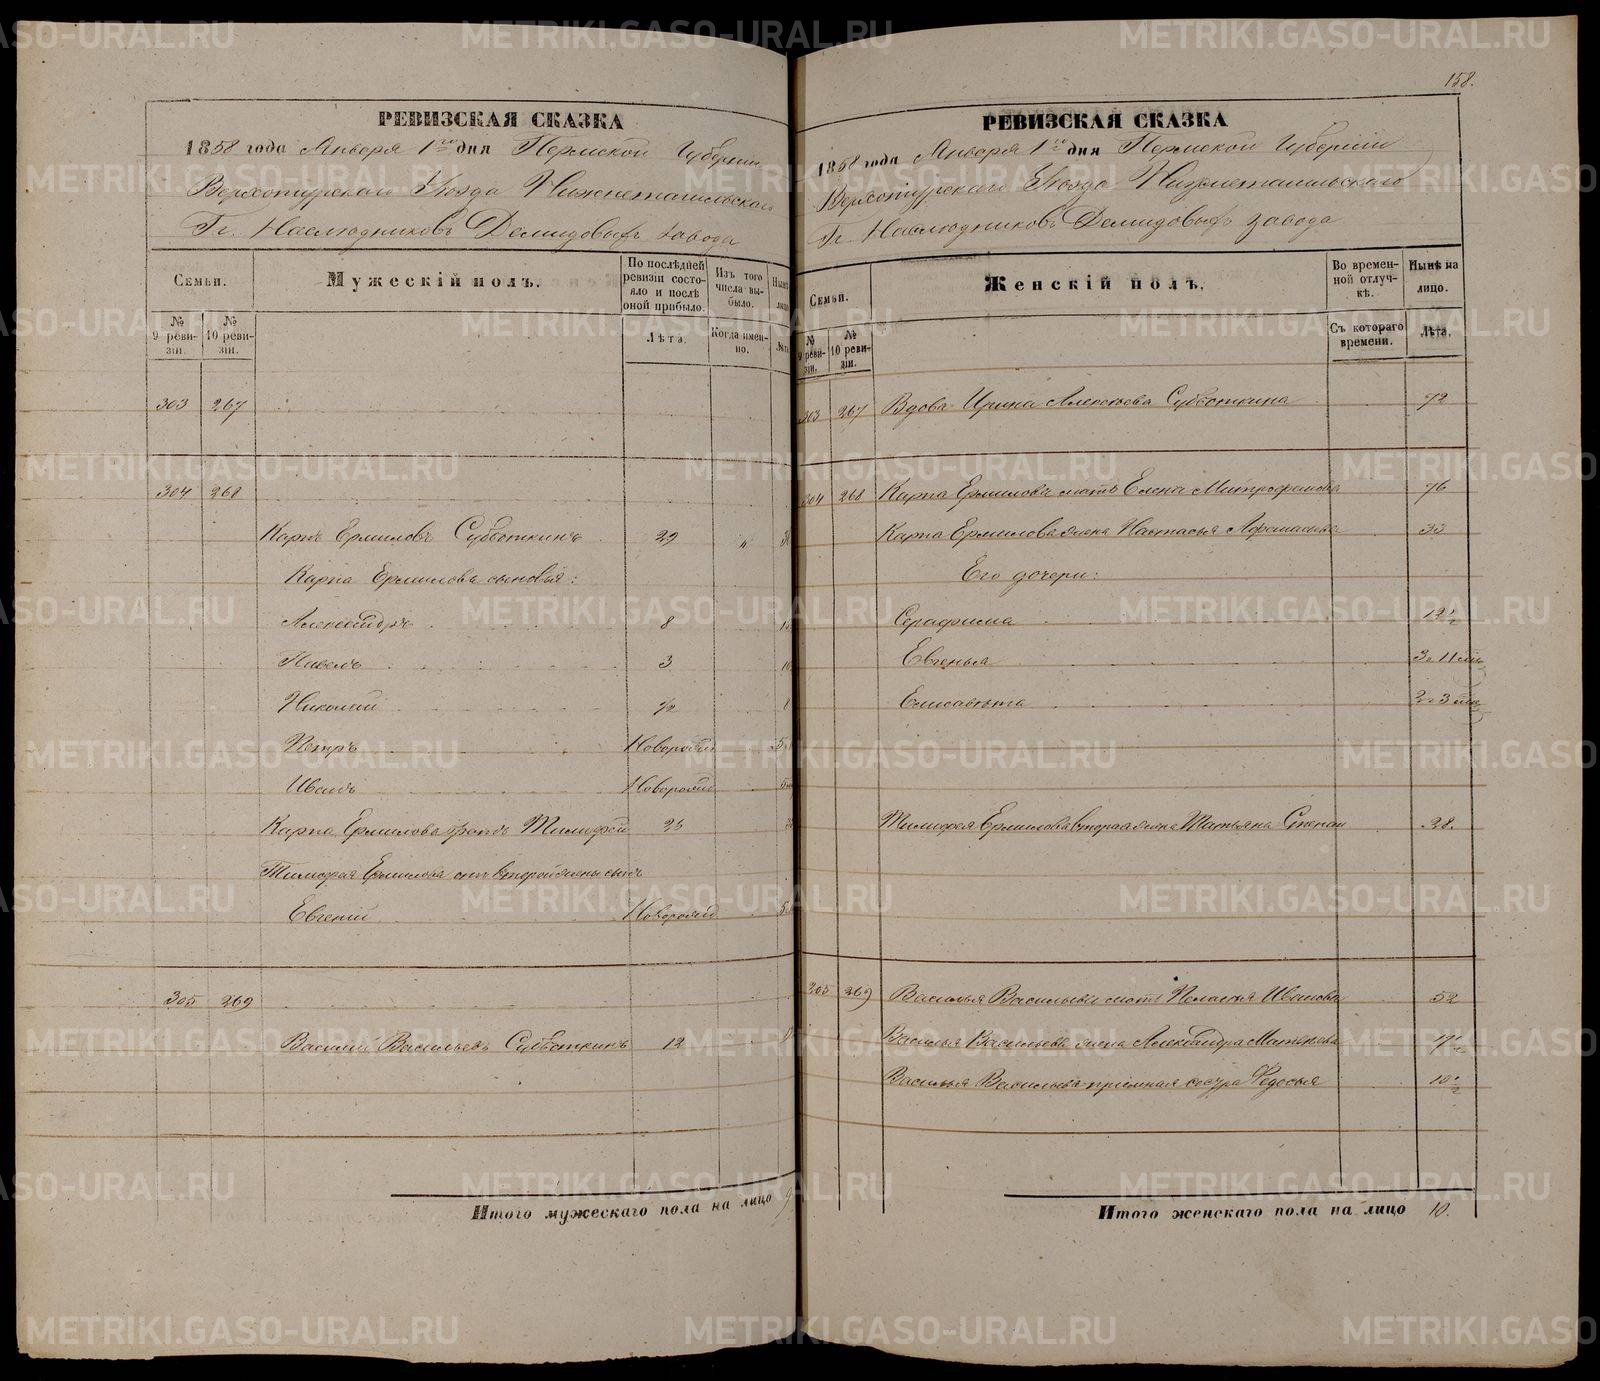 РЕВИЗСКАЯ СКАЗКА
1858 года Января 1го дня Пермской Губернии
Верхотурскаго Уѣзда Нижнетагильскаго
Гг. Наслѣдниковъ Демидовыхъ завода
Семьи.
Мужескій полъ.
По послѣдней ревизіи состояло и послѣ оной прибыло.
Изъ того числа выбыло.
Нынѣ
№ 9 ревизіи.
№ 10 ревизіи.
Лѣта.
Когда именно.
303 267
304 268
Карпъ Ермиловъ Субботкинъ 29 "
Карпа Ермилова сыновья:
Александръ 8
Павелъ 3
Николай 1/2
Петръ Новорожд
Иванъ Новорожд
Карпа Ермилова братъ Тимофей 25
Тимофея Ермилова отъ второй жены сынъ
Евгеній Новорожд
305 269
Василій Васильевъ Субботкинъ 12
Итого мужескаго пола на лицо 9
158.
РЕВИЗСКАЯ СКАЗКА
1858 года Января 1го дня Пермской Губерніи
Верхотурскаго Уѣзда Нижнетагильскаго
Гг. Наслѣдниковъ Демидовыхъ завода
Семьи.
Женскій полъ.
Во временной отлучкѣ.
Нынѣ на лицо.
№ 9 ревизіи.
№ 10 ревизіи.
Съ котораго времени.
Лѣта.
303 267 Вдова Ирина Алексѣева Субботкина 72
304 268 Карпа Ермилова мать Елена Митрофанова 76
Карпа Ермилова жена Настасья Афанасьева 33
Его дочери:
Серафима 12 1/2
Евгенья 3 г. 11 мѣс
Елисавѣта 2 г. 3 мѣс
Тимофея Ермилова вторая жена Татьяна Степан 28.
305 269 Василья Васильева мать Пелагея Иванова 52
Василья Васильева жена Александра Матвѣева
Василья Васильева пріемная сестра Ѳедосья 10 1/2
Итого женскаго пола на лицо 10.
METRIKI.GASO-URAL.RU